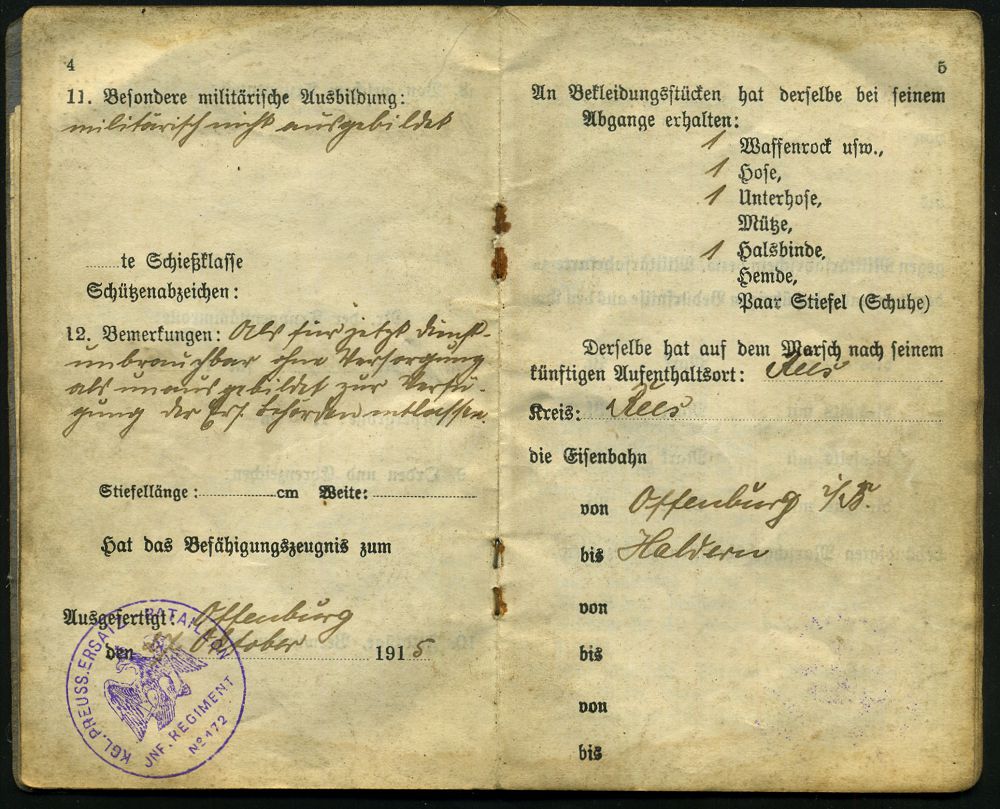 4
11. Besondere militärische Ausbildung:
militärisch nicht ausgebildet
te Schießklasse
Schützenabzeichen:
12. Bemerkungen: Als für jetzt dienst-
unbrauchbar ohne Versorgung
als unausgebildet zur Verfü-
gung der Ers. Behörden entlassen.
Stiefellänge: cm Weite:
Hat das Befähigungszeugnis zum
Ausgefertigt: Offenburg
den Oktober 1915
KGL. PREUSS. ERSATZ BATAILLON
JNF. REGIMENT No 172
5
An Bekleidungsstücken hat derselbe bei seinem
Abgange erhalten:
1 Waffenrock usw.,
1 Hose,
1 Unterhose,
Mütze,
1 Halsbinde,
Hemde,
Paar Stiefel (Schuhe)
Derselbe hat auf dem Marsch nach seinem
künftigen Aufenthaltsort: Rees
Kreis: Rees
die Eisenbahn
von Offenburg i/B.
bis Haldern
von
bis
von
bis